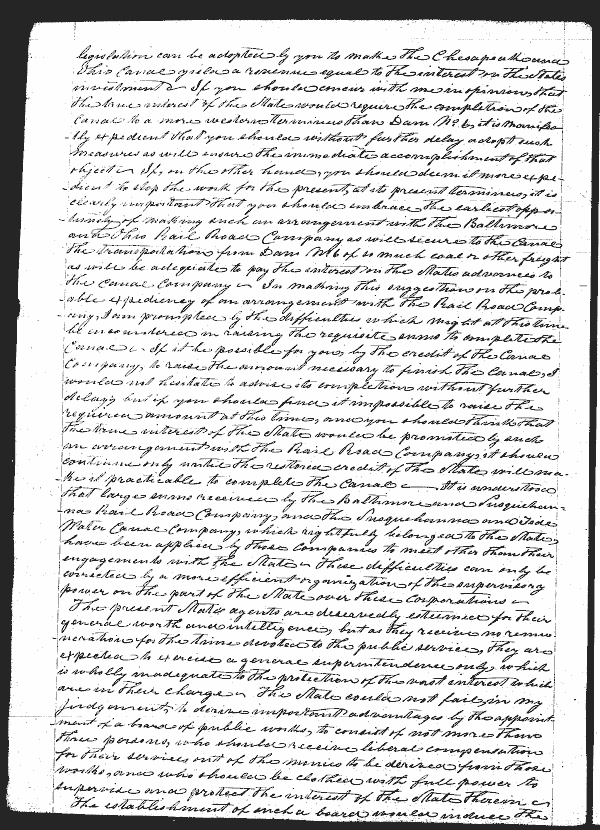 legislation can be adopted by you to make the Chesapeake and
Ohio Canal yield a revenue equal to the interest on the States
investment. If you should concur with me in opinion, that
the true interest of the State would require the completion of the
Canal to a more western terminus than Dam No. 6, it is manifes-
tly expedient that you should without further delay adopt such
measures as will ensure the immediate accomplishment of that
object. If, on the other hand, you should deem it more expe-
dient to stop the work for the present, at its present terminus, it is
clearly important that you should embrace the earliest oppor-
tunity of making such an arrangement with the Baltimore
and Ohio Rail Road Company as will secure to the Canal
the transportation from Dam No 6 of so much coal or other freight
as will be adequate to pay the interest on the States advances to
the Canal Company. In making this suggestion on the prob-
able expediency of an arrangement with the Rail Road Comp-
any, I am prompted by the difficulties which might at this time
be encountered in raising the requisite sums to complete the
Canal. If it be possible for you, by the credit of the Canal
Company, to raise the amount necessary to finish the Canal, I
would not hesitate to advise its completion without further
delay; but if you should find it impossible to raise the
required amount at this time, and you should think that
the true interest of the State would be promoted by such
an arrangement with the Rail Road Company, it should
continue only until the restored credit of the State will ma-
ke it practicable to complete the Canal. It is understood
that large sums received by the Baltimore and Susquehan-
na Rail Road Company, and the Susquehanna and Tide
Water Canal Company, which rightfully belonged to the State,
have been applied by those Companies to meet other than their
engagements with the State. These difficulties can only be
corrected by a more efficient organization of the supervisory
power on the part of the State over these Corporations.
The present States agents are deservedly esteemed for their
general worth and intelligence, but as they receive no remu-
neration for the time devoted to the public service, they are
expected to exercise a general superintendence only, which
is wholly inadequate to the protection of the vast interest which
are in their charge. The State could not fail, in my
judgement, to derive important advantages by the appoint-
ment of a board of public works, to consist of not more than
three persons, who should receive liberal compensation
for their services out of the monies to be derived from those
works, and who should be clothed with full power to
supervise and protect the interest of the State therein.
The establishment of such a board would induce the